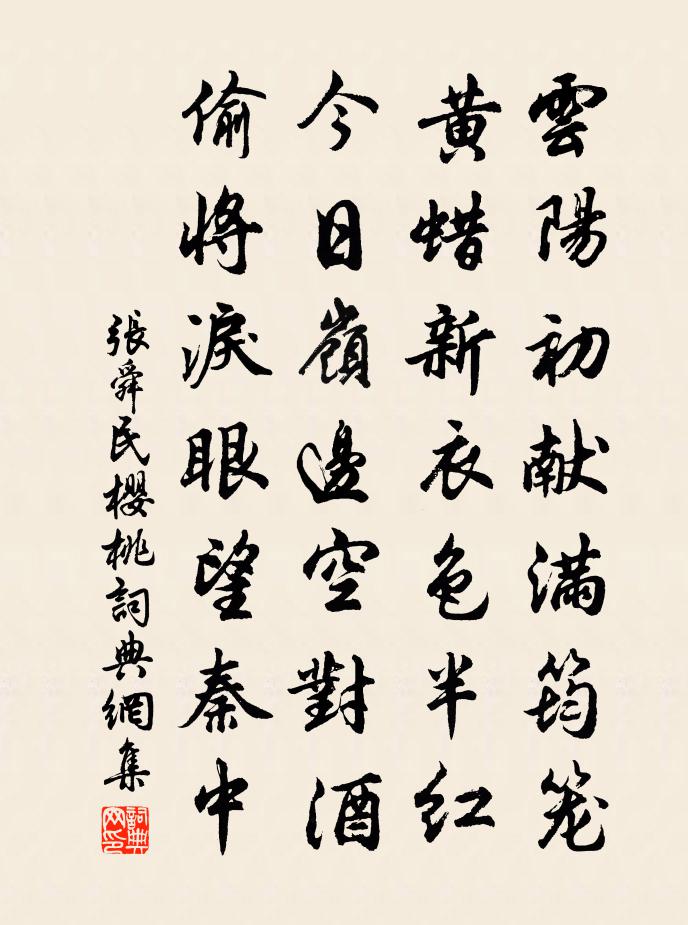 雲陽初献滿筠笼
黄蜡新衣色半红
今日嶺邊空對酒
偷將淚眼望秦中
張舜民櫻桃詞典網集
詞典网印